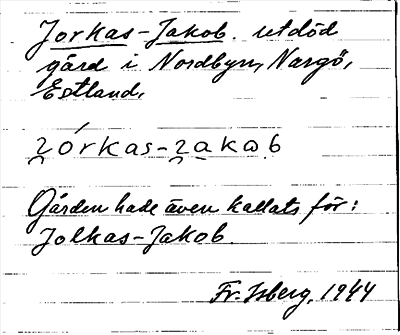 Jorkas-Jakob. utdöd
gård i Nordbyn, Nargö,
Estland.
ȷórkas-ȷakob
Gården hade även kallats för:
Jolkas-Jakob.
Fr. Isberg, 1944